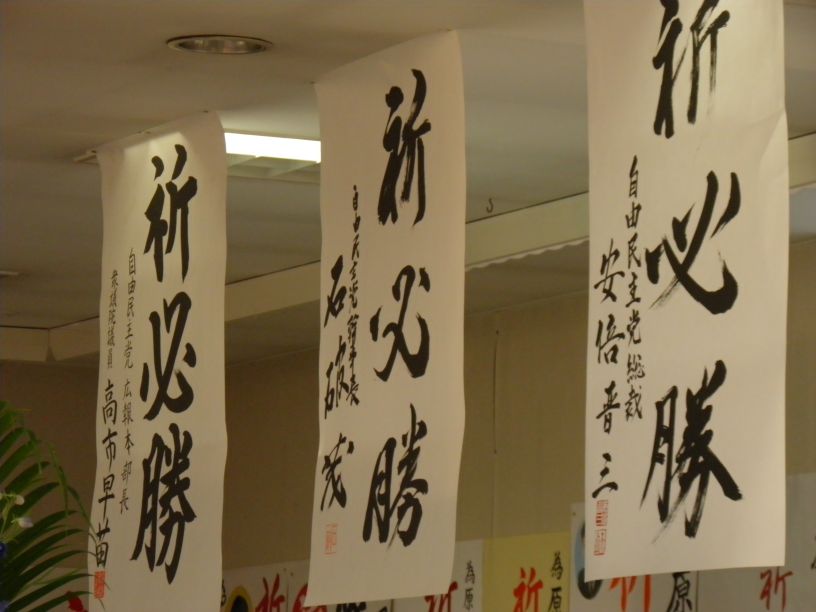 祈必勝
自由民主党総裁
安倍晋三
祈必勝
自由民主党幹事長
石破茂
祈必勝
自由民主党 広報本部長
衆議院議員 高市早苗
為原
祈
為原
祈
為
祈
原
祈